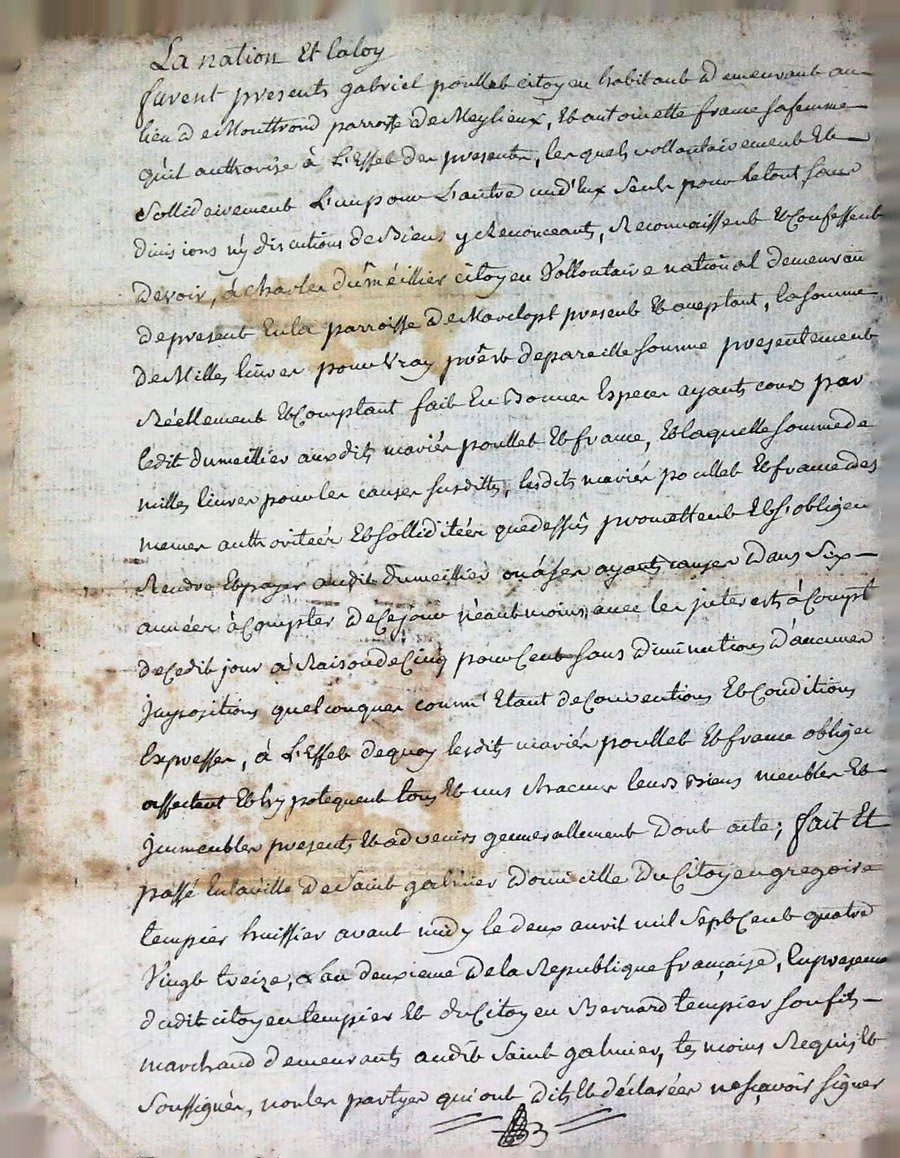 La nation Et laloy
furent presents gabriel poullet citoyen habitant Demeurant au
lieu De Monttrond parroisse De Meylieux, Et antoinette frame safemme
qu'il authorise à L'Effet des presentes, lesquels vollontairement Et
Sollideirement L'un pour L'autre un d'Eux Seul pour Letout sans
divisions n'y discutions de Biens y Renonceant, Reconnaissent Et Confessent
Devoir, à charles duméillier citoyen Vollontaire national demeurant
de present En la parroisse De Marclopt present Et aceptant, la somme
De Milles livres pour Vray prêt de pareille somme presentement
Réellement Et Comptant fait En Bonnes Especes ayants cours par
ledit dumeillier auxdits mariés poullet Et frame, Et laquelle somme de
milles livres pour les causes susdittes, lesdits mariés poullet Et frame des
memes authoritées Et solliditées que dessus promettent Et s'obligent
Rendre Et payer audit dumeillier ou à ses ayants causes Dans Six
années à Compter De Ce jour néantmoins avec les jnterests à Compt
de Cedit jour à Raison de Cinq pour Cent sans diminutions D'aucunes
jmpositions quelconques comm' Etant de Conventions Et Conditions
Expresses, à L'Effet dequoy lesdits mariés poullet Et frame obligent
affectent Et hypotequent tous Et uns chacuns leurs Biens meubles Et
jmmeubles presents Et advenirs gennerallement Dont acte; fait Et
passé En la ville De Saint galmier Domicille Du Citoyen gregoire
tempier huissier avant midy le deux avril mil Sept Cent quatre
Vingt treize, L'an deuxieme De la Republique française, En presence
dudit citoyen tempier Et du Citoyen Bernard tempier son fils
marchand demeurants audit Saint galmier, temoins Requis Et
Soussignés, non les partyes qui ont Dits Et déclarées ne sçavoir signer